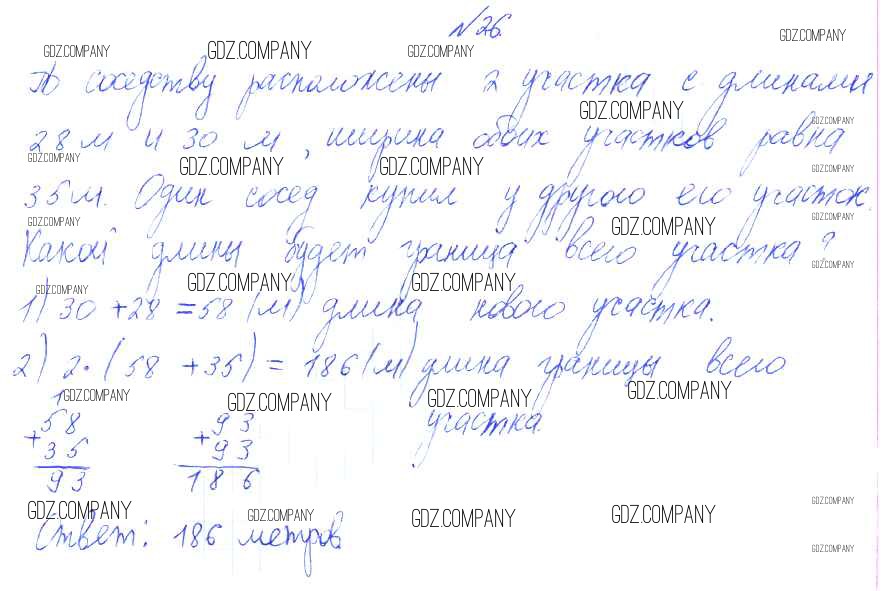 №26.
GDZ.COMPANY GDZ.COMPANY GDZ.COMPANY GDZ.COMPANY
По соседству расположены 2 участка с длинами
GDZ.COMPANY GDZ.COMPANY
28 м и 30 м, ширина обоих участков равна
GDZ.COMPANY GDZ.COMPANY GDZ.COMPANY GDZ.COMPANY
35 м. Один сосед купил у другого его участок.
GDZ.COMPANY GDZ.COMPANY GDZ.COMPANY
Какой длины будет граница всего участка?
GDZ.COMPANY GDZ.COMPANY GDZ.COMPANY GDZ.COMPANY
1) 30 + 28 = 58 (м) длина нового участка.
2) 2 · (58 + 35) = 186 (м) длина границы всего
GDZ.COMPANY GDZ.COMPANY GDZ.COMPANY GDZ.COMPANY
участка.
1
58 93
+ +
35 93
93 186
GDZ.COMPANY GDZ.COMPANY GDZ.COMPANY GDZ.COMPANY GDZ.COMPANY
Ответ: 186 метров.
GDZ.COMPANY